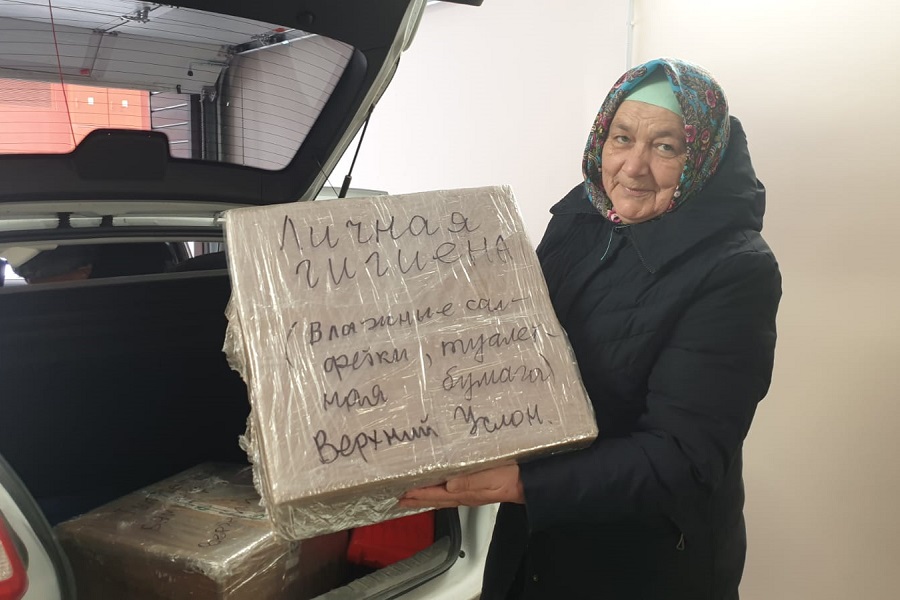 Личная
гигиена
(Влажные сал-
фетки, туалет-
ная бумага)
Верхний Услон.